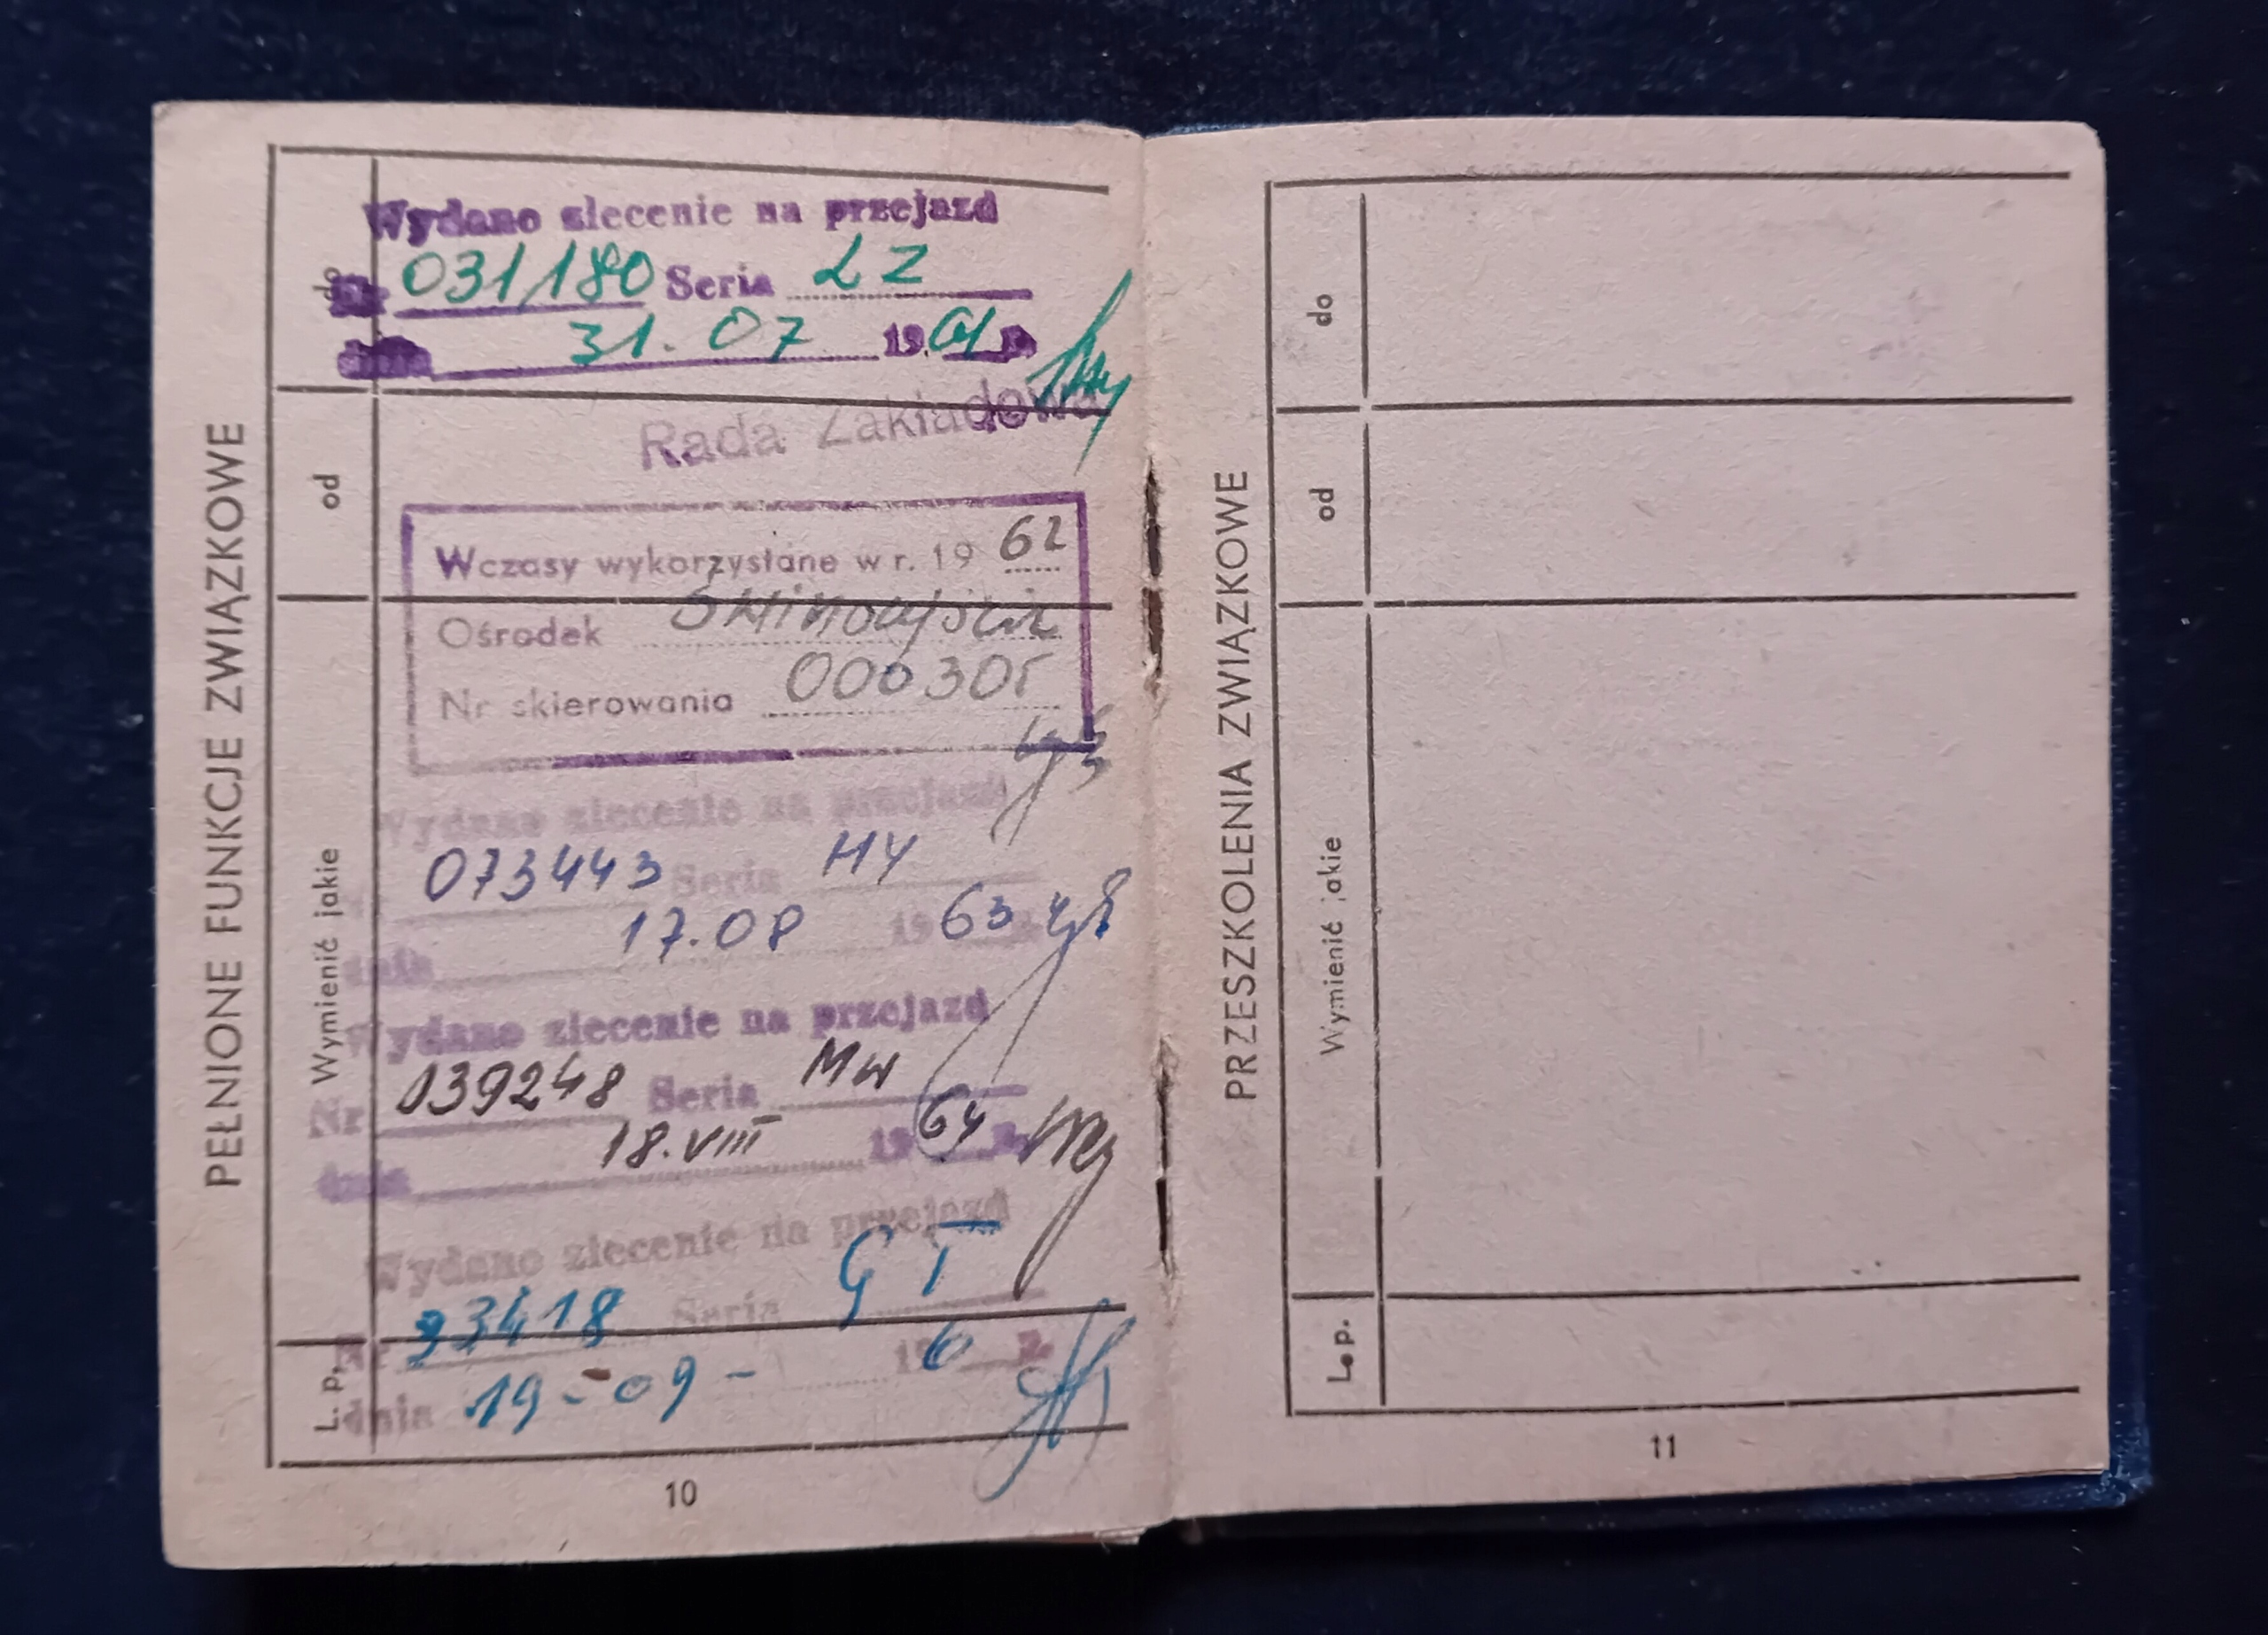 PEŁNIONE FUNKCJE ZWIĄZKOWE
do
od
Wymienić jakie
L. p.
Wydano zlecenie na przejazd
Nr 031180 Seria LZ
dnia 31.07 1961 r.
Rada Zakładowa
Wczasy wykorzystane w r. 1962
Ośrodek Świnoujście
Nr skierowania 000305
Wydano zlecenie na przejazd
Nr 073443 Seria HY
dnia 17.08 1963 r.
Wydano zlecenie na przejazd
Nr 039248 Seria MW
dnia 18.VIII 1964 r.
Wydano zlecenie na przejazd
Nr 93418 Seria GT
dnia 19-09- 196 r.
10
PRZESZKOLENIA ZWIĄZKOWE
do
od
Wymienić jakie
L. p.
11